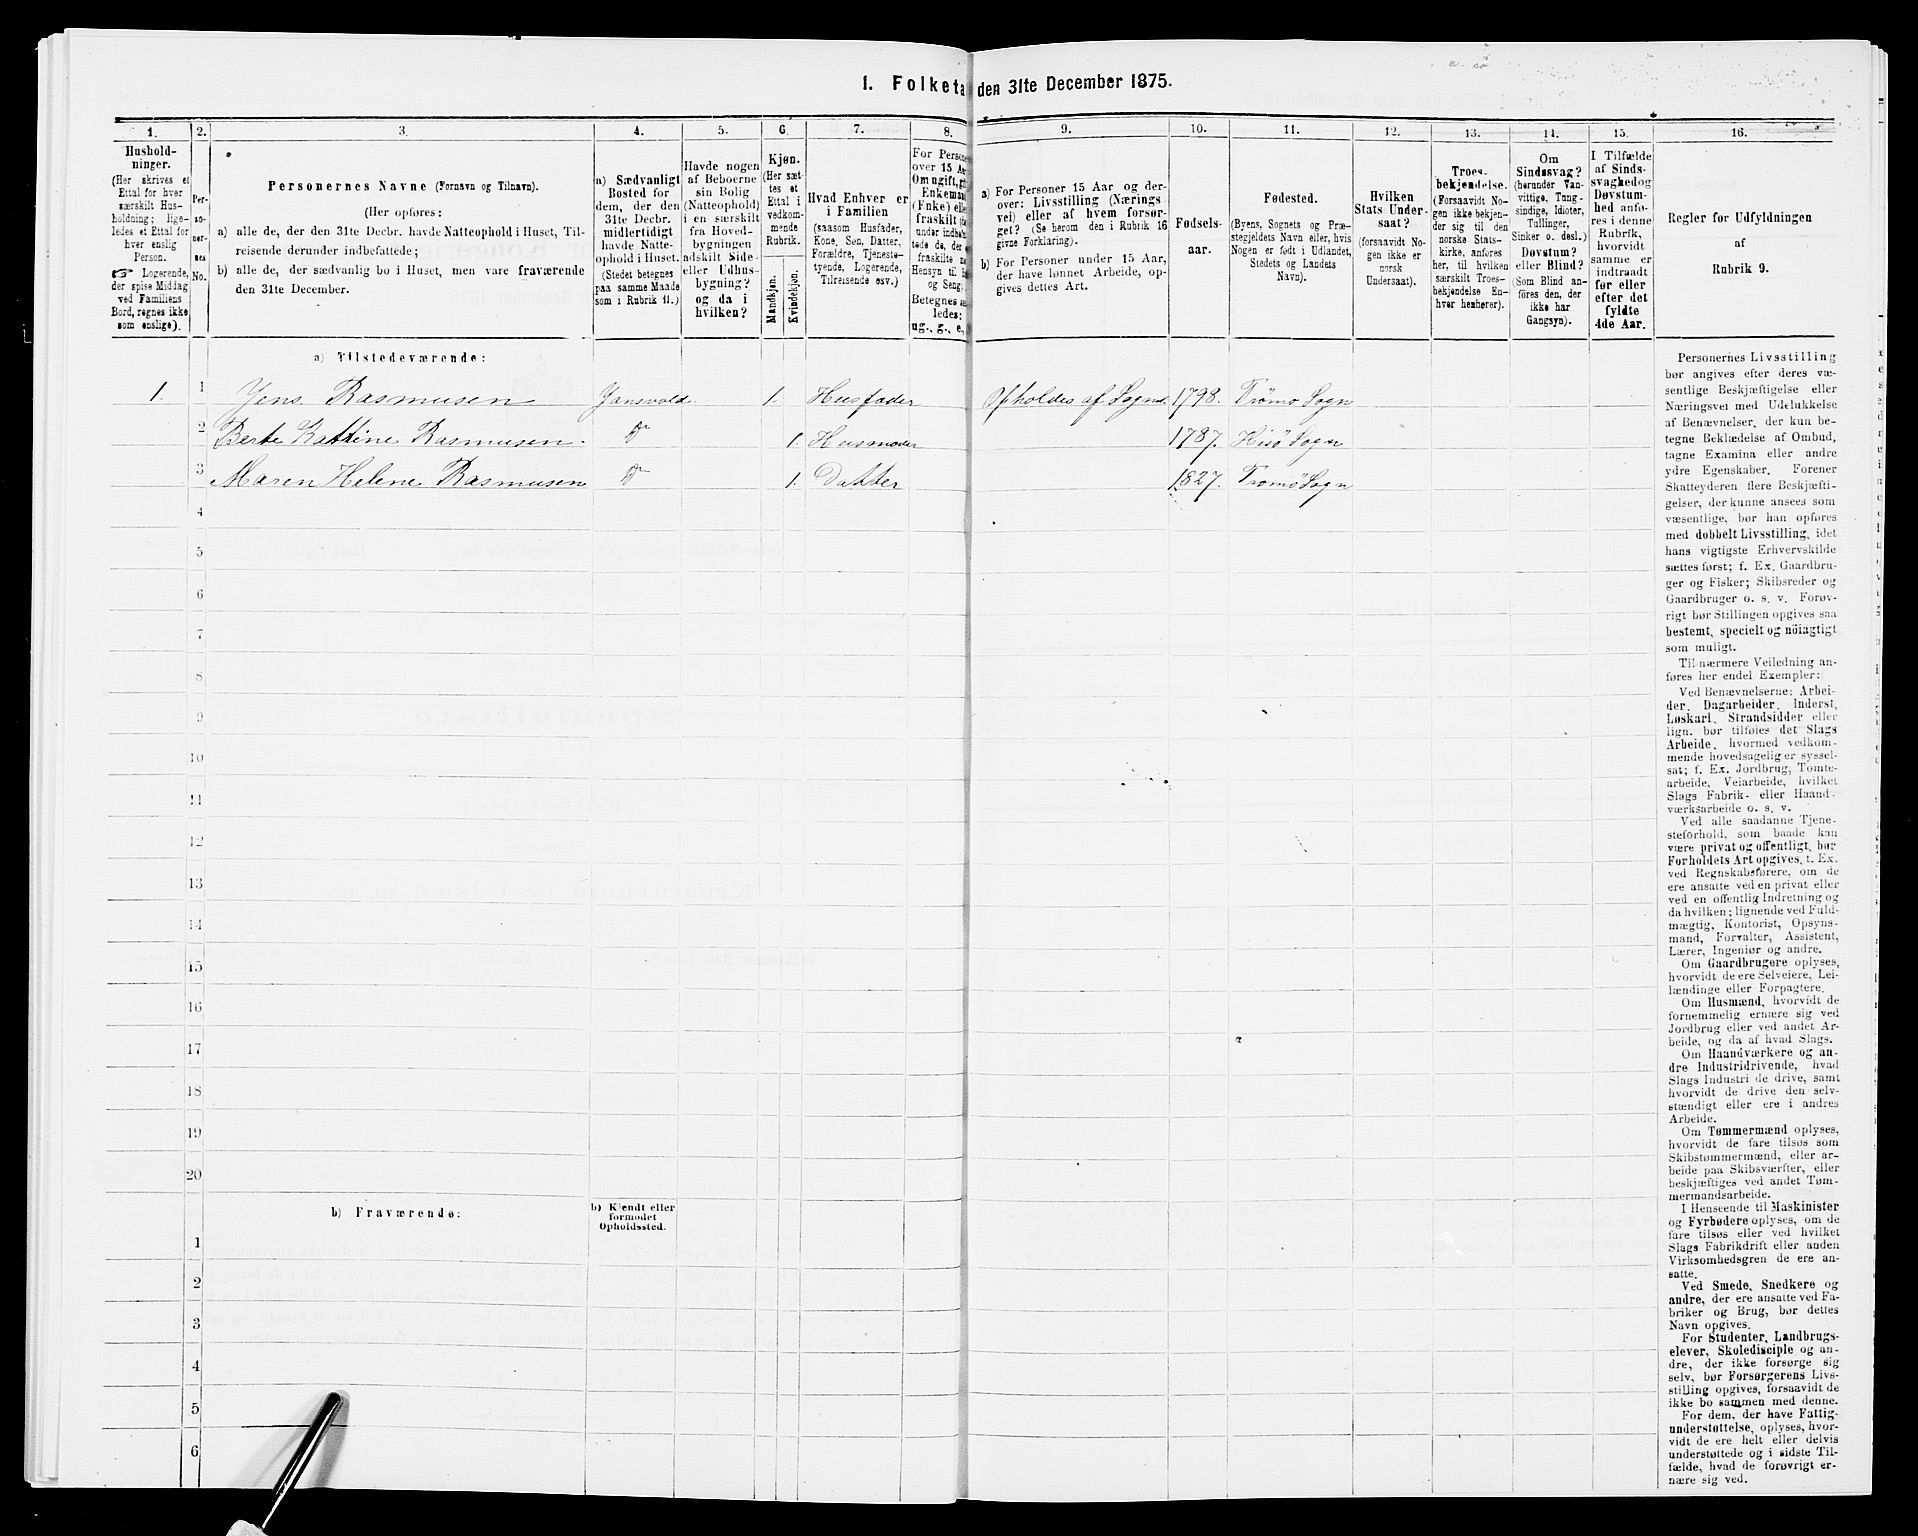 1. Folketa den 31te December 1875.
1. 2. 3. 4. 5. 6. 7. 8. 9. 10. 11. 12. 13. 14. 15. 16.
Hushold-
ninger.
(Her skrives et
Ettal for hver
særskilt Hus-
holdning; lige-
ledes et Ettal for
hver enslig
Person.
☞ Logerende,
der spise Middag
ved Familiens
Bord, regnes ikke
som enslige).
Per-
so-
ner-
nes
No.
Personernes Navne (Fornavn og Tilnavn).
(Her opføres:
a) alle de, der den 31te Decbr. havde Natteophold i Huset, Til-
reisende derunder indbefattede;
b) alle de, der sædvanlig bo i Huset, men vare fraværende
den 31te December.
a) Sædvanligt
Bosted for
dem, der den
31te Decbr.
midlertidigt
havde Natte-
ophold i Huset.
(Stedet betegnes
paa samme Maade
som i Rubrik 11.)
Havde nogen
af Beboerne
sin Bolig
(Natteophold)
i en særskilt
fra Hoved-
bygningen
adskilt Side-
eller Udhus-
bygning?
og da i
hvilken?
Kjøn.
(Her sæt-
tes et
Ettal i
vedkom-
mende
Rubrik.
Mandkjøn.
Kvindekjøn.
Hvad Enhver er
i Familien
(saasom Husfader,
Kone, Søn, Datter,
Forældre, Tjeneste-
tyende, Logerende,
Tilreisende osv.)
For Persone
over 15 Aa
Om ugift, gi
Enkeman
(Enke) elle
fraskilt
under indbe
tede de, der
fraskilte
Hensyn til
og Seng.
Betegnes s
ledes:
ug., g., e.,
a) For Personer 15 Aar og der-
over: Livsstilling (Nærings-
vei) eller af hvem forsør-
get? (Se herom den i Rubrik 16
givne Forklaring.)
b) For Personer under 15 Aar,
der have lønnet Arbeide, op-
gives dettes Art.
Fødsels-
aar.
Fødested.
(Byens, Sognets og Præ-
stegjeldets Navn eller, hvis
Nogen er født i Udlandet,
Stedets og Landets
Navn).
Hvilken
Stats Under-
saat?
(forsaavidt No-
gen ikke er
norsk
Undersaat).
Troes-
bekjendelse.
(Forsaavidt No-
gen ikke bekjen-
der sig til den
norske Stats-
kirke, anføres
her, til hvilken
særskilt Troes-
bekjendelse En-
hver henhører).
Om
Sindssvag?
(herunder Van-
vittige, Tung-
sindige, Idioter,
Tullinger,
Sinker o. desl.)
Døvstum?
eller Blind?
(Som Blind an-
føres den, der
ikke har
Gangsyn).
I Tilfælde
af Sinds-
svaghed og
Døvstum-
hed anfø-
res i denne
Rubrik,
hvorvidt
samme er
indtraadt
før eller
efter det
fyldte
4de Aar.
Regler for Udfyldningen
af
Rubrik 9.
a) Tilstedeværende:
1. 1 Jens Rasmusen Jansvold 1. Husfader Opholdes af Sogn. 1798. Tromø Sogn
2 Berte Kattine Rasmusen Do 1. Husmoder 1787. Hisø Sogn
3 Maren Helene Rasmusen Do 1. Datter 1827. Tromø Sogn
4
5
6
7
8
9
10
11
12
13
14
15
16
17
18
19
20
b) Fraværende:
b) Kjendt eller
formodet
Opholdssted.
1
2
3
4
5
6
Personernes Livsstilling
bør angives efter deres væ-
sentlige Beskjæftigelse eller
Næringsvei med Udelukkelse
af Benævnelser, der kun be-
tegne Beklædelse af Ombud,
tagne Examina eller andre
ydre Egenskaber. Forener
Skatteyderen flere Beskjæfti-
gelser, der kunne ansees som
væsentlige, bør han opføres
med dobbelt Livsstilling, idet
hans vigtigste Erhvervskilde
sættes først; f. Ex. Gaardbru-
ger og Fisker; Skibsreder og
Gaardbruger o. s. v. Forøv-
rigt bør Stillingen opgives saa
bestemt, specielt og nöiagtigt
som muligt.
Til nærmere Veiledning an-
føres her endel Exempler:
Ved Benævnelserne: Arbei-
der, Dagarbeider, Inderst,
Løskarl, Strandsidder eller
lign. bør tilføies det Slags
Arbeide, hvormed vedkom-
mende hovedsagelig er syssel-
sat; f. Ex. Jordbrug, Tomte-
arbeide, Veiarbeide, hvilket
Slags Fabrik- eller Haand-
værksarbeide o. s. v.
Ved alle saadanne Tjene-
steforhold, som baade kan
være privat og offentligt, bør
Forholdets Art opgives, t. Ex.
ved Regnskabsførere, om de
ere ansatte ved en privat eller
ved en offentlig Indretning og
da hvilken; lignende ved Fuld-
mægtig, Kontorist, Opsyns-
mand, Forvalter, Assistent,
Lærer, Ingeniør og andre.
Om Gaardbrugere oplyses,
hvorvidt de ere Selveiere, Lei-
lændinge eller Forpagtere.
Om Husmænd, hvorvidt de
fornemmelig ernære sig ved
Jordbrug eller ved andet Ar-
beide, og da af hvad Slags.
Om Haandværkere og an-
dre Industridrivende, hvad
Slags Industri de drive, samt
hvorvidt de drive den selv-
stændigt eller ere i andres
Arbeide.
Om Tømmermænd oplyses,
hvorvidt de fare tilsøs som
Skibstømmermænd, eller ar-
beide paa Skibsværfter, eller
beskjæftiges ved andet Tøm-
mermandsarbeide.
I Henseende til Maskinister
og Fyrbødere oplyses, om de
fare tilsøs eller ved hvilket
Slags Fabrikdrift eller anden
Virksomhedsgren de ere an-
satte.
Ved Smede, Snedkere og
andre, der ere ansatte ved Fa-
briker og Brug, bør dettes
Navn opgives.
For Studenter, Landbrugs-
elever, Skoledisciple og an-
dre, der ikke forsørge sig
selv, bør Forsørgerens Livs-
stilling opgives, forsaavidt de
ikke bo sammen med denne.
For dem, der have Fattig-
understøttelse, oplyses, hvor-
vidt de ere helt eller delvis
understøttede og i sidste Til-
fælde, hvad de forøvrigt er-
nære sig ved.